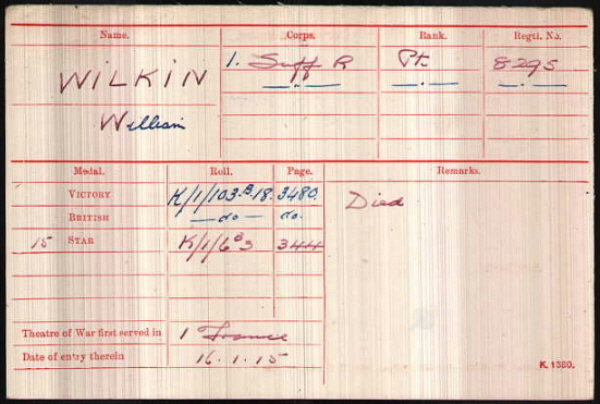 Name. Corps. Rank. Regtl. No.
WILKIN 1. Suff R Pt. 8295
William — . — — . — — . —
Medal. Roll. Page. Remarks.
VICTORY K/1/103.B.18. 3480. Died
BRITISH — do — do.
15 STAR K/1/6B3 344
Theatre of War first served in 1 France
Date of entry therein 16.1.15
K. 1380.